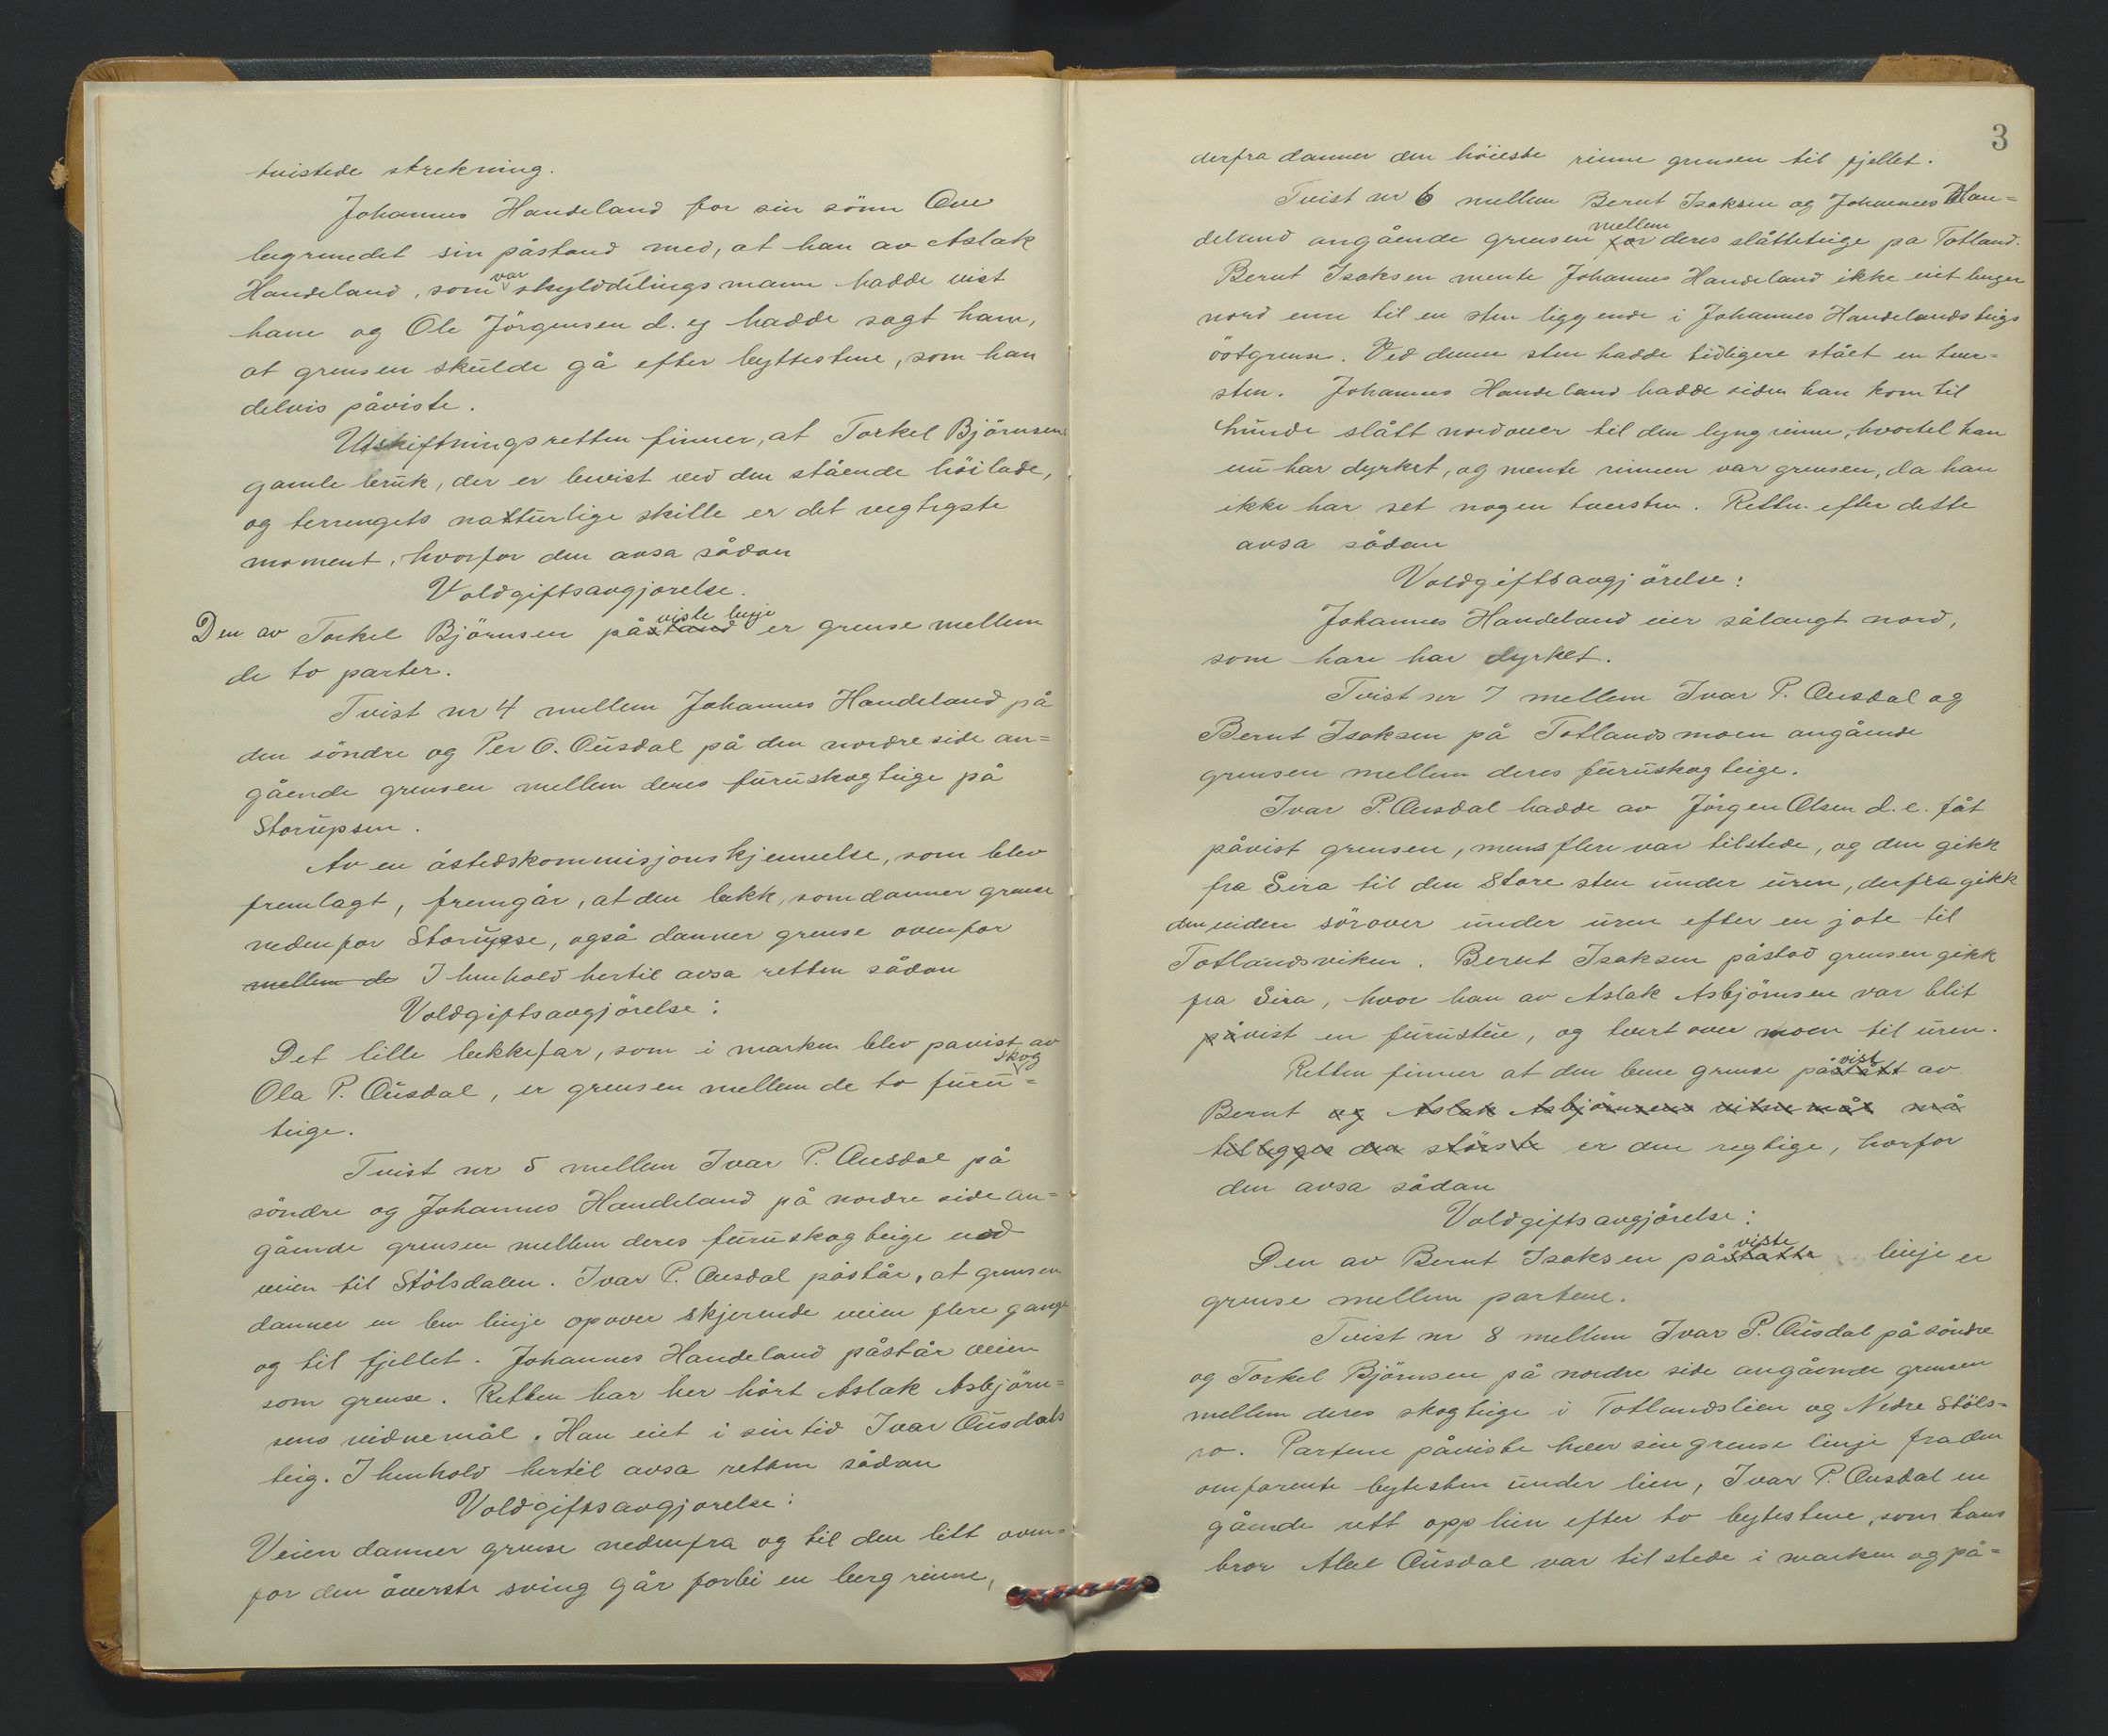 tvistede strekning.
Johannes Handeland for sin sönn Ove
begrunedet sin påstand med, at han av Aslak
Handeland, som var skylddelingsmann hadde vist
ham og Ole Jörgensen d. eg hadde sagt ham,
at grensen skulde gå efter byttestene, som han
delvis påviste.
Utskiftningsretten finner, at Torkel Björnsens
gamle bruk, der er bevist ved den stående höilade,
og terrengets natturlige skille er det vegtigste
moment, hvorfor den avsa sådan
Voldgiftsavgjorelse.
Den av Torkel Björnsen påstand viste linje er grense mellem
de to parter.
Tvist nr 4 mellem Johannes Handeland på
den söndre og Per O. Ousdal på den nordre side an=
gående grensen mellem deres furuskogteige på
Storupsen.
Av en åstedskommisjonskjennelse, som blev
fremlagt, fremgår, at den bekk, som danner grense
nedenfor Storupse, også danner grense ovenfor
mellem de I henhold hertil avsa retten sådan
Voldgiftsavgjörelse:
Det lille bekkefar, som i marken blev pavist av
Ola P. Ousdal, er grensen mellem de to furu=skog
teige.
Tvist nr 5 mellem Ivar P. Ousdal på
söndre og Johannes Handeland på nordre side an=
gående grensen mellem deres furuskogteige ved
veien til Stölsdalen. Ivar P. Ousdal påstår, at grensen
danner en ben linje opover skjerende veien flere gange
og til fjellet. Johannes Handeland påstår veien
som grense. Retten har her hört Aslak Asbjörn=
sens vidnemål. Han eiet i sin tid Ivar Ousdals
teig. I henhold hertil avsa retten sådan
Voldgiftsavgjorelse:
Veien danner grense nedenfra og til den litt oven=
for den överste sving går forbi en bergrinne,
3
derfra danner den höieste rinne grensen til fjellet.
Tvist nr 6 mellem Bernt Isaksen og Johannes Han=
deland angående grensen for mellem deres slåtteteige pa Totland.
Bernt Isaksen mente Johannes Handeland ikke eiet lenger
nord enn til en sten liggende i Johannes Handelands teigs
östgrense. Ved denne sten hadde tidligere stået en tver=
sten. Johannes Handeland hadde siden han kom til
hunde slått nordover til den lyngrinne, hvortil han
nu har dyrket, og mente rinnen var grensen, da han
ikke har set nogen tversten. Retten efter dette
avsa sådan
Voldgiftsavgjörelse:
Johannes Handeland eier sålangt nord,
som han har dyrket.
Tvist nr 7 mellem Ivar P. Ousdal og
Bernt Isaksen på Totlandsmoen angående
grensen mellem deres furuskogteige.
Ivar P. Ousdal hadde av Jörgen Olsen d.e. fåt
påvist grensen, mens flere var tilstede, og den gikk
fra Sira til den Store sten under uren, derfra gikk
den videre sörover under uren efter en jote til
Totlandsviken. Bernt Isaksen påstod grensen gikk
fra Sira, hvor han av Aslak Asbjörnsen var blit
påvist en furusteie, og tvert over moen til uren.
Retten finner at den bene grense påstått vist av
Bernt og Aslak Asbjörnsens vitnemål må
tillegges den störste er den regtige, horfor
den avsa sådan
Voldgiftsavgjörelse:
Den av Bernt Isaksen påstatte viste linje er
grense mellem partene.
Tvist nr 8 mellem Ivar P. Ousdal på söndre
og Torkel Björnsen på nordre side angående grensen
mellem deres skogteige i Totlandslien og Nedre Stöls=
ro. Partene påviste hver sin grense linje fra den
omforente bytesten under lien, Ivar P. Ousdal en
gående rett opp lien efter to bytestene, som hans
bror Abel Ousdal var til stede i marken og på=